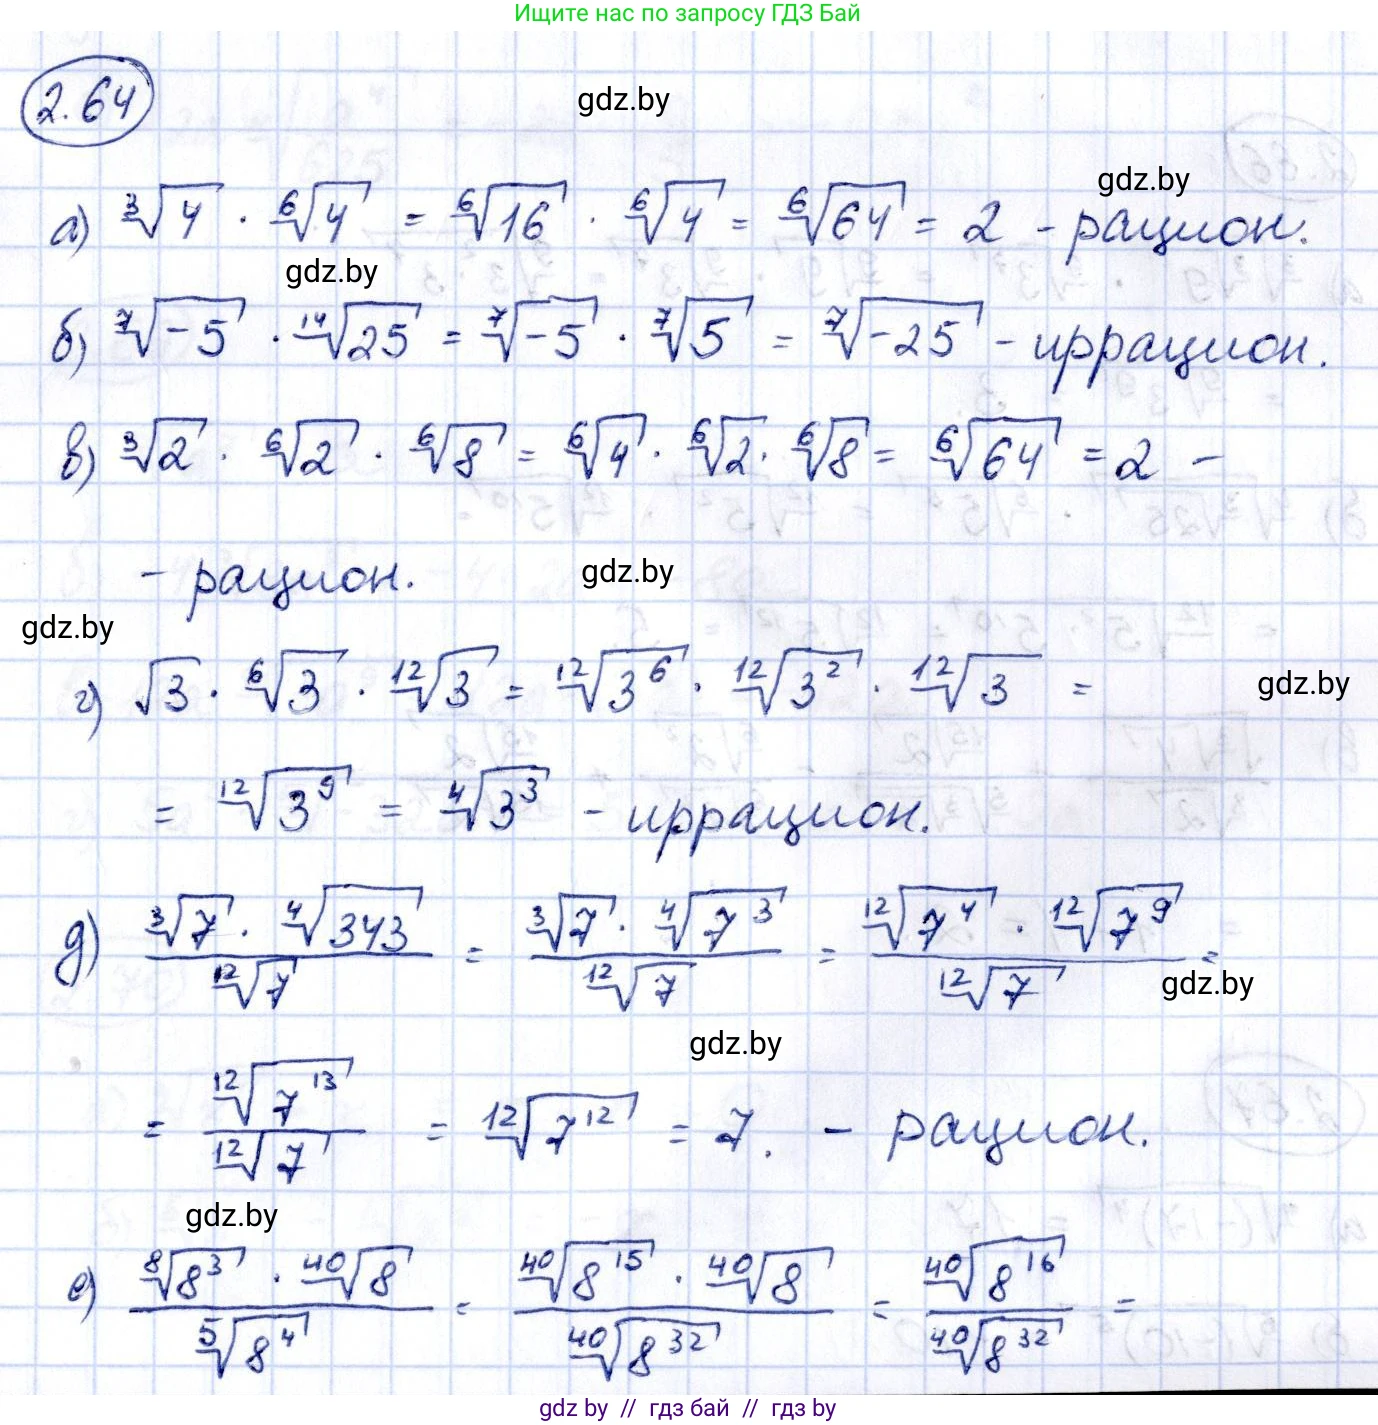 Ищите нас по запросу ГДЗ Бай
2.64
gdz.by
gdz.by
а) ∛4 · ⁶√4 = ⁶√16 · ⁶√4 = ⁶√64 = 2 - рацион.
gdz.by
б) ⁷√-5 · ¹⁴√25 = ⁷√-5 · ⁷√5 = ⁷√-25 - иррацион.
в) ∛2 · ⁶√2 · ⁶√8 = ⁶√4 · ⁶√2 · ⁶√8 = ⁶√64 = 2 -
- рацион.
gdz.by
gdz.by
г) √3 · ⁶√3 · ¹²√3 = ¹²√3⁶ · ¹²√3² · ¹²√3 =
gdz.by
= ¹²√3⁹ = ⁴√3³ - иррацион.
д) (∛7 · ⁴√343)/(¹²√7) = (∛7 · ⁴√7³)/(¹²√7) = (¹²√7⁴ · ¹²√7⁹)/(¹²√7) =
gdz.by
gdz.by
= (¹²√7¹³)/(¹²√7) = ¹²√7¹² = 7. - рацион.
gdz.by
е) (⁸√8³ · ⁴⁰√8)/(⁵√8⁴) = (⁴⁰√8¹⁵ · ⁴⁰√8)/(⁴⁰√8³²) = (⁴⁰√8¹⁶)/(⁴⁰√8³²) =
gdz by // гдз бай // гдз by